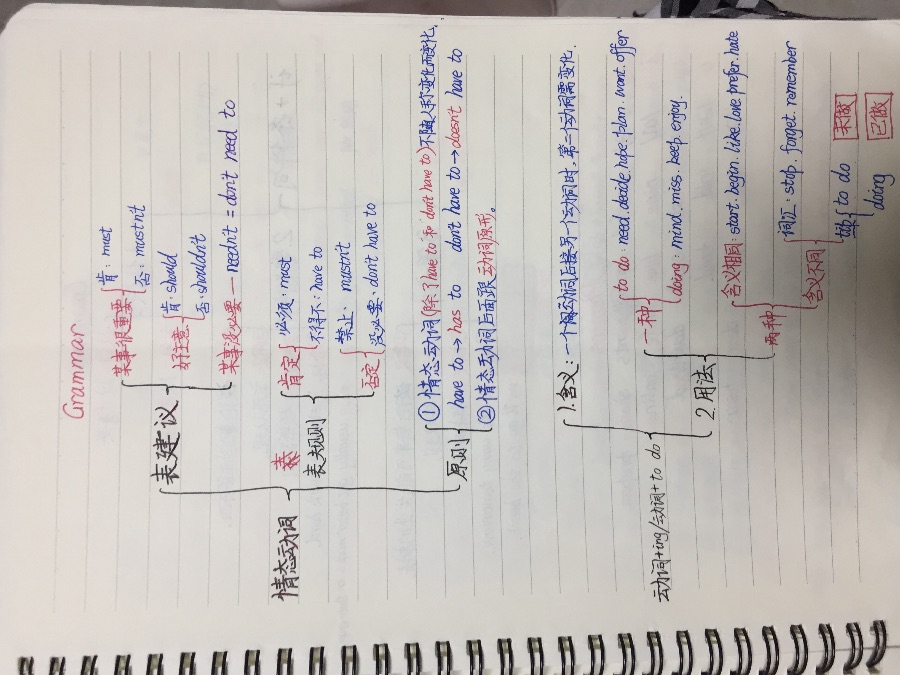 Grammar
情态动词
表建议
某事很重要
肯：must
否：mustn't
好注意
肯：should
否：shouldn't
某事没必要 — needn't = don't need to
表规则
肯定
必须：must
不得不：have to
否定
禁止：mustn't
没必要：don't have to
原则
① 情态动词(除了have to 和 don't have to)不随人称变化而变化.
have to → has to don't have to → doesn't have to
② 情态动词后面跟动词原形。
动词+ing/动词+to do
1. 含义：一个动词后接另一个动词时，第二个动词需变化.
2. 用法
一种
to do：need.decide.hope.plan.want.offer
doing：mind.miss.keep.enjoy.
两种
含义相同：start.begin.like.love.prefer.hate
含义不同
词汇：stop.forget.remember
to do 未做
doing 已做